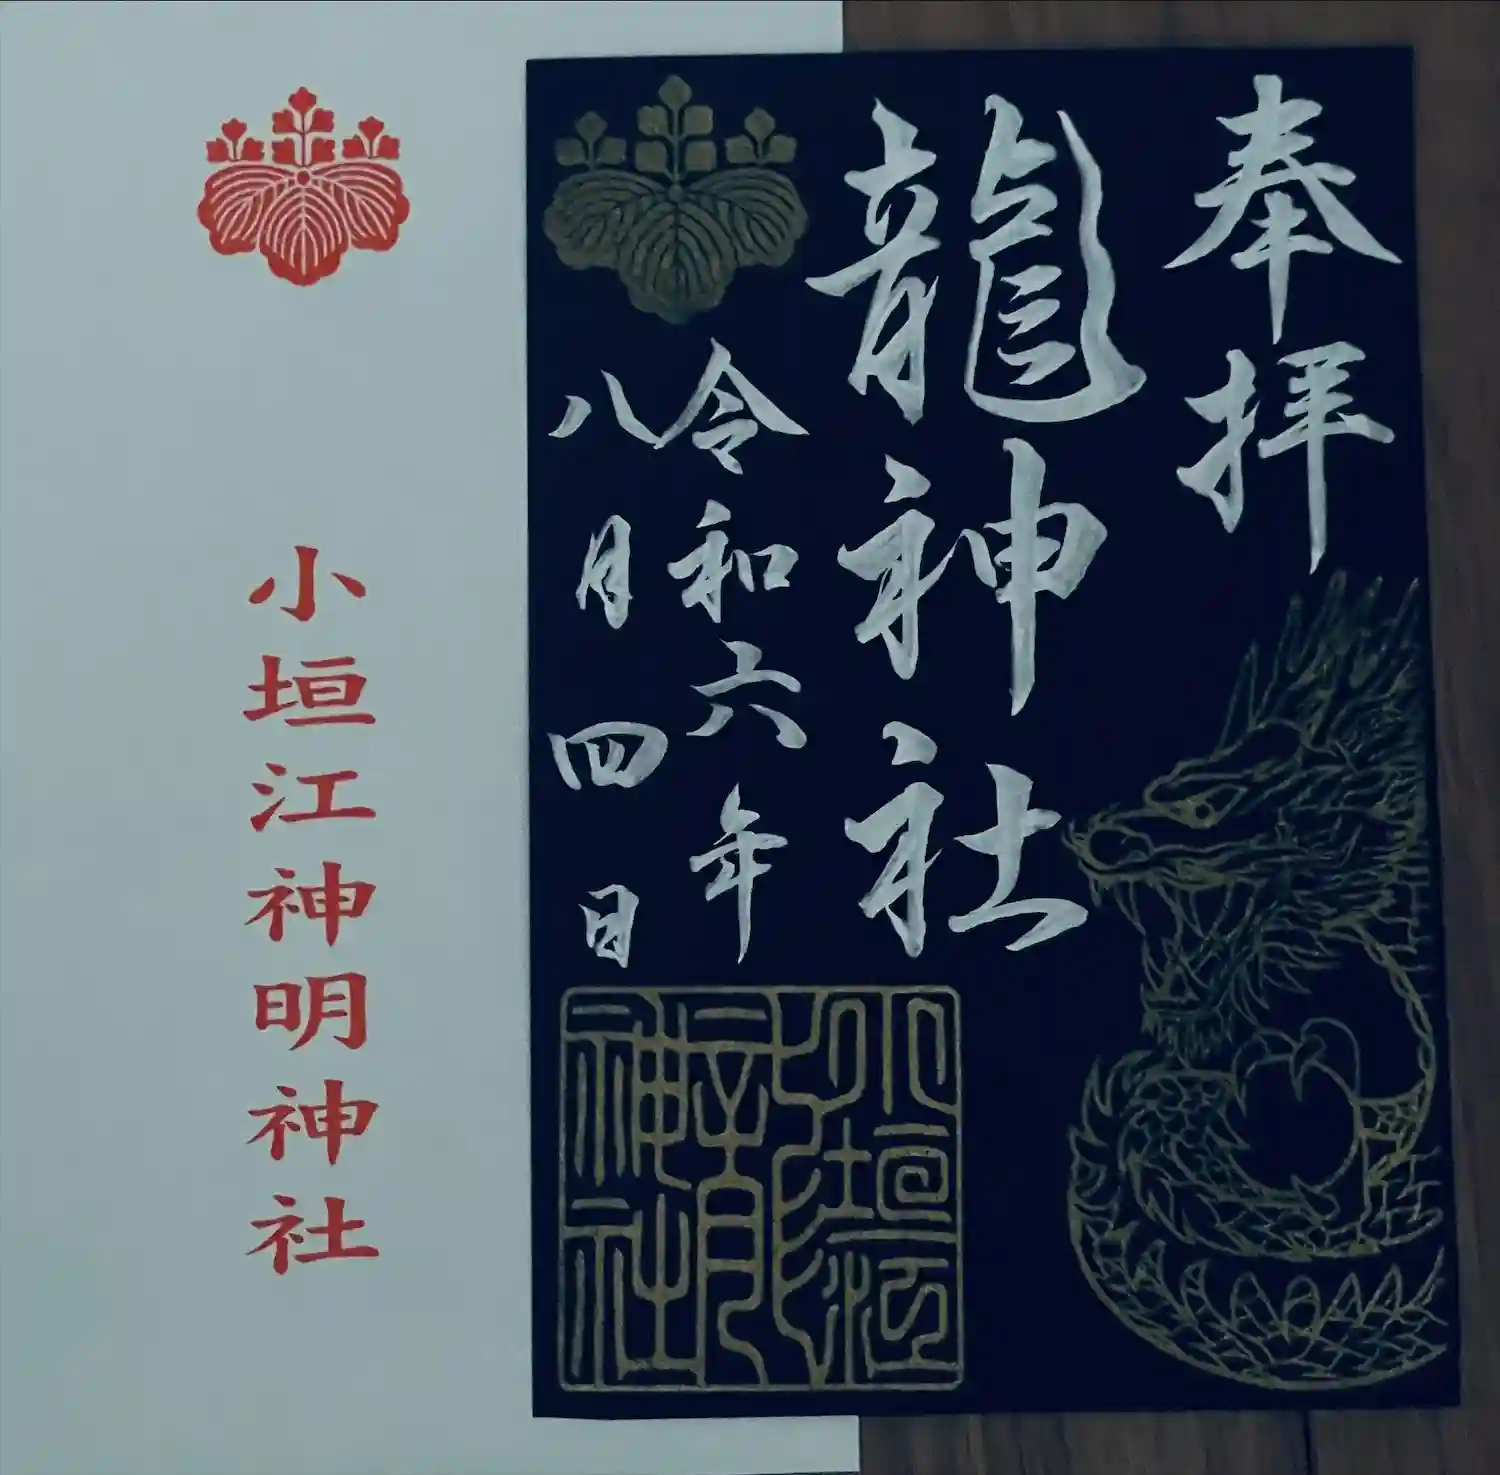 奉拝
龍神社
令和六年
八月四日
小垣江
龍神社
小垣江神明神社